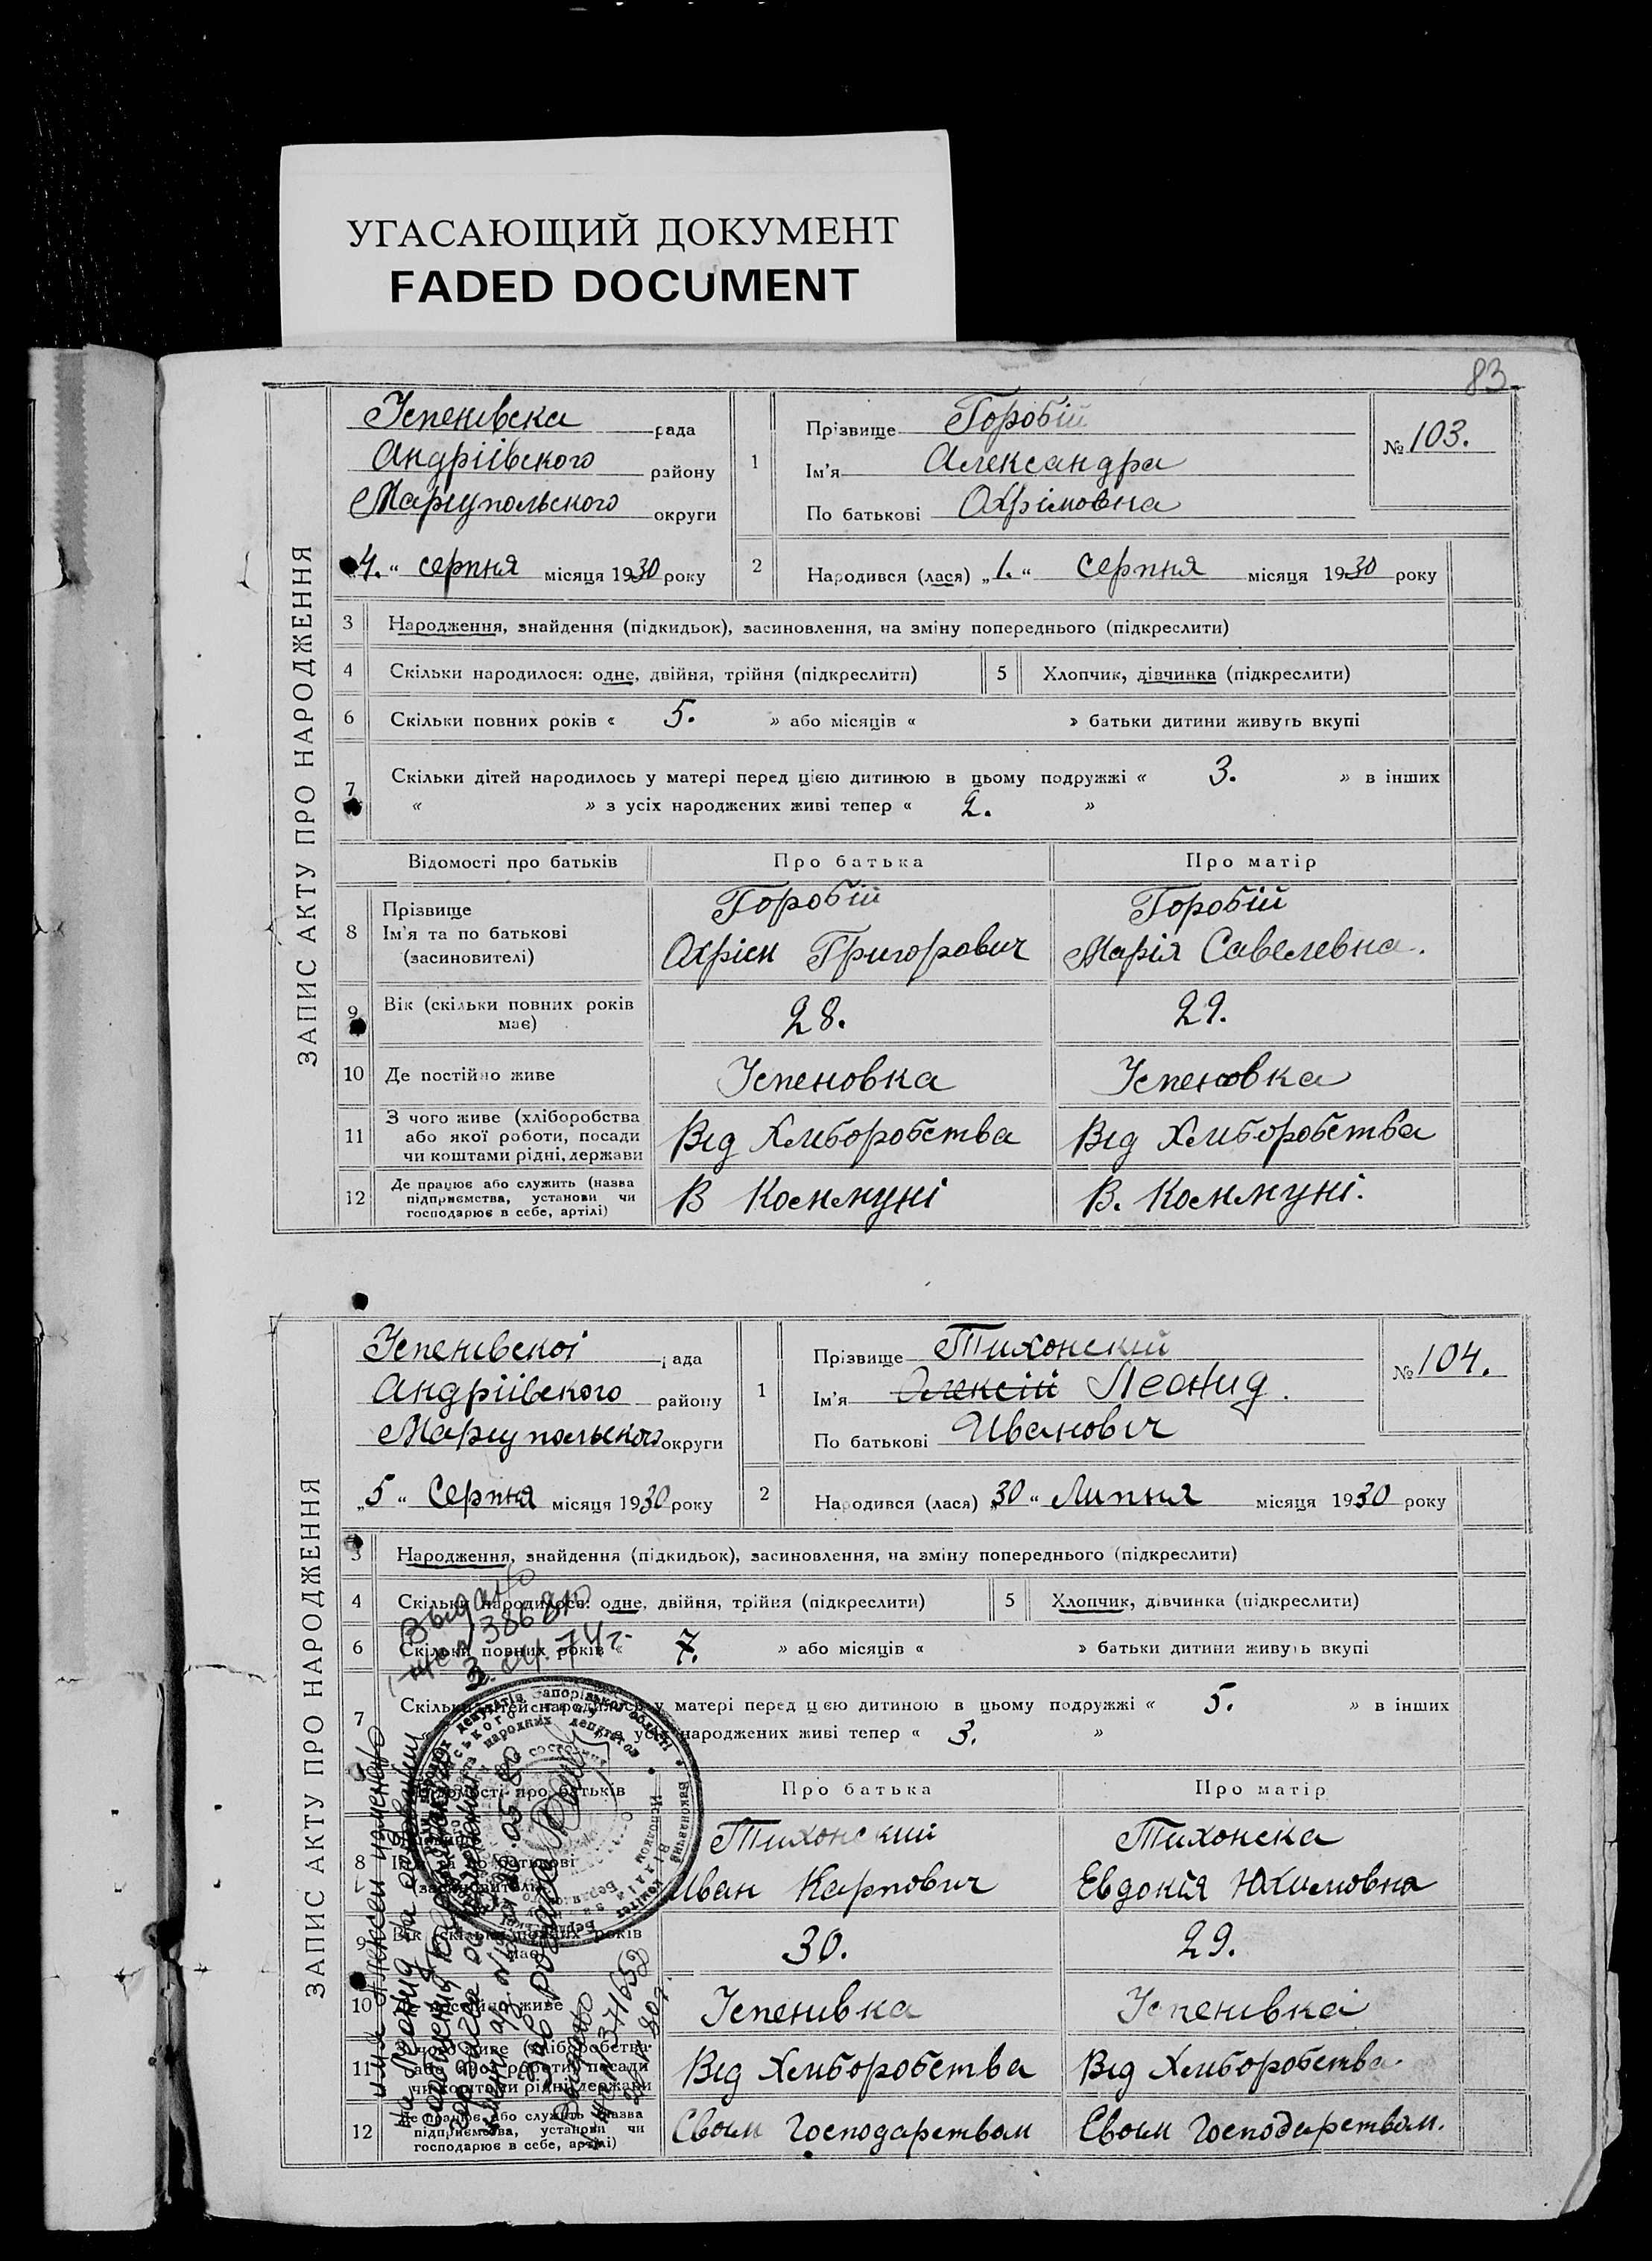 УГАСАЮЩИЙ ДОКУМЕНТ
FADED DOCUMENT
83
ЗАПИС АКТУ ПРО НАРОДЖЕННЯ
Успенівска рада
Андріівського району
Маріупольского округи
4. “ серпня місяця 1930 року
1
Прізвище Горобій
Ім'я Александра
По батькові Охрімовна
№ 103.
2
Народився (лася) „1.“ серпня місяця 1930 року
3 Народження, знайдення (підкидьок), засиновлення, на зміну попереднього (підкреслити)
4 Скільки народилося: одне, двійня, трійня (підкреслити) 5 Хлопчик, дівчинка (підкреслити)
6 Скільки повних років « 5. » або місяців « » батьки дитини живуть вкупі
7 Скільки дітей народилось у матері перед цією дитиною в цьому подружжі « 3. » в інших
« » з усіх народжених живі тепер « 2. »
Відомості про батьків Про батька Про матір
8 Прізвище Ім'я та по батькові (засиновителі)
Горобій Горобій
Охрім Григорович Марія Савелевна.
9 Вік (скільки повних років має) 28. 29.
10 Де постійно живе Успеновка Успеновка
11 З чого живе (хліборобства або якої роботи, посади чи коштами рідні, держави Від Хлиборобства Від Хлиборобства
12 Де працює або служить (назва підприємства, установи чи господарює в себе, артілі) В Коммуні В. Коммуні.
ЗАПИС АКТУ ПРО НАРОДЖЕННЯ
Успенівскоі рада
Андріівского району
Маріупольского округи
„5“ Серпня місяця 1930 року
1
Прізвище Тихонский
Ім'я Олексій Леонид.
По батькові Иванович
№ 104.
2
Народився (лася) „30“ Липня місяця 1930 року
3 Народження, знайдення (підкидьок), засиновлення, на зміну попереднього (підкреслити)
4 Скільки народилося: одне, двійня, трійня (підкреслити) 5 Хлопчик, дівчинка (підкреслити)
6 Скільки повних років « 7. » або місяців « » батьки дитини живуть вкупі
7 Скільки дітей народилось у матері перед цією дитиною в цьому подружжі « 5. » в інших
усіх народжених живі тепер « 3. »
Відомості про батьків Про батька Про матір
8
Тихонский Тихонска
Иван Карпович Евдокія Юхимовна
9 Вік (скільки повних років має) 30. 29.
10 Де постійно живе Успенивка Успенивка
11 З чого живе (хліборобства або якої роботи, посади чи коштами рідні, держави Від Хлиборобства Від Хлиборобства
12 Де працює або служить (назва підприємства, установи чи господарює в себе, артілі) Своим Господарством Своим Господарством.
имя Алексей изменено
на Леонид на основании